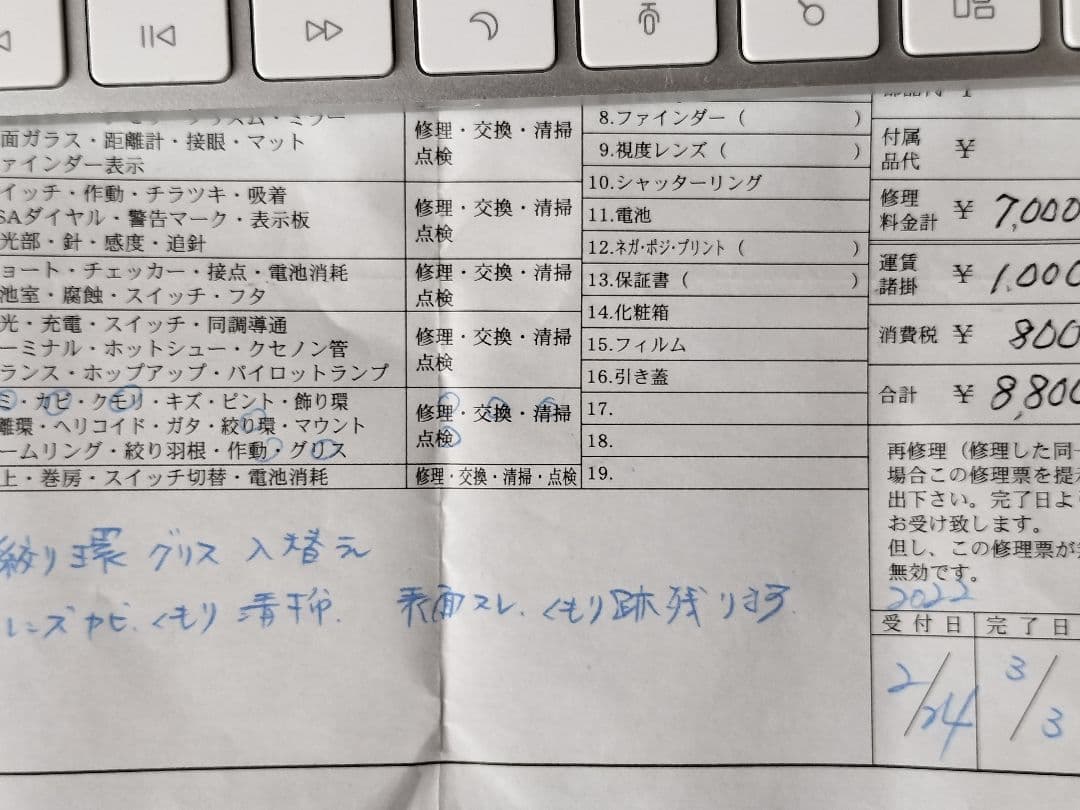 面ガラス・距離計・接眼・マット
ァインダー表示
修理・交換・清掃
点検
イッチ・作動・チラツキ・吸着
SAダイヤル・警告マーク・表示板
光部・針・感度・追針
修理・交換・清掃
点検
ョート・チェッカー・接点・電池消耗
池室・腐蝕・スイッチ・フタ
修理・交換・清掃
点検
光・充電・スイッチ・同調導通
ーミナル・ホットシュー・クセノン管
ランス・ホップアップ・パイロットランプ
修理・交換・清掃
点検
ミ・カビ・クモリ・キズ・ピント・飾り環
離環・ヘリコイド・ガタ・絞り環・マウント
ームリング・絞り羽根・作動・グリス
修理・交換・清掃
点検
上・巻房・スイッチ切替・電池消耗
修理・交換・清掃・点検
8.ファインダー（ ）
9.視度レンズ（ ）
10.シャッターリング
11.電池
12.ネガ・ポジ・プリント（ ）
13.保証書（ ）
14.化粧箱
15.フィルム
16.引き蓋
17.
18.
19.
付属
品代 ¥
修理
料金計 ¥ 7,000
運賃
諸掛 ¥ 1,000
消費税 ¥ 800
合計 ¥ 8,800
再修理（修理した同一
場合この修理票を提
出下さい。完了日よ
お受け致します。
但し、この修理票が
無効です。
2022
受付日 完了日
2/24 3/3
絞り環 グリス 入替え
レンズカビ.くもり 清掃. 表面スレ.くもり跡残ります.